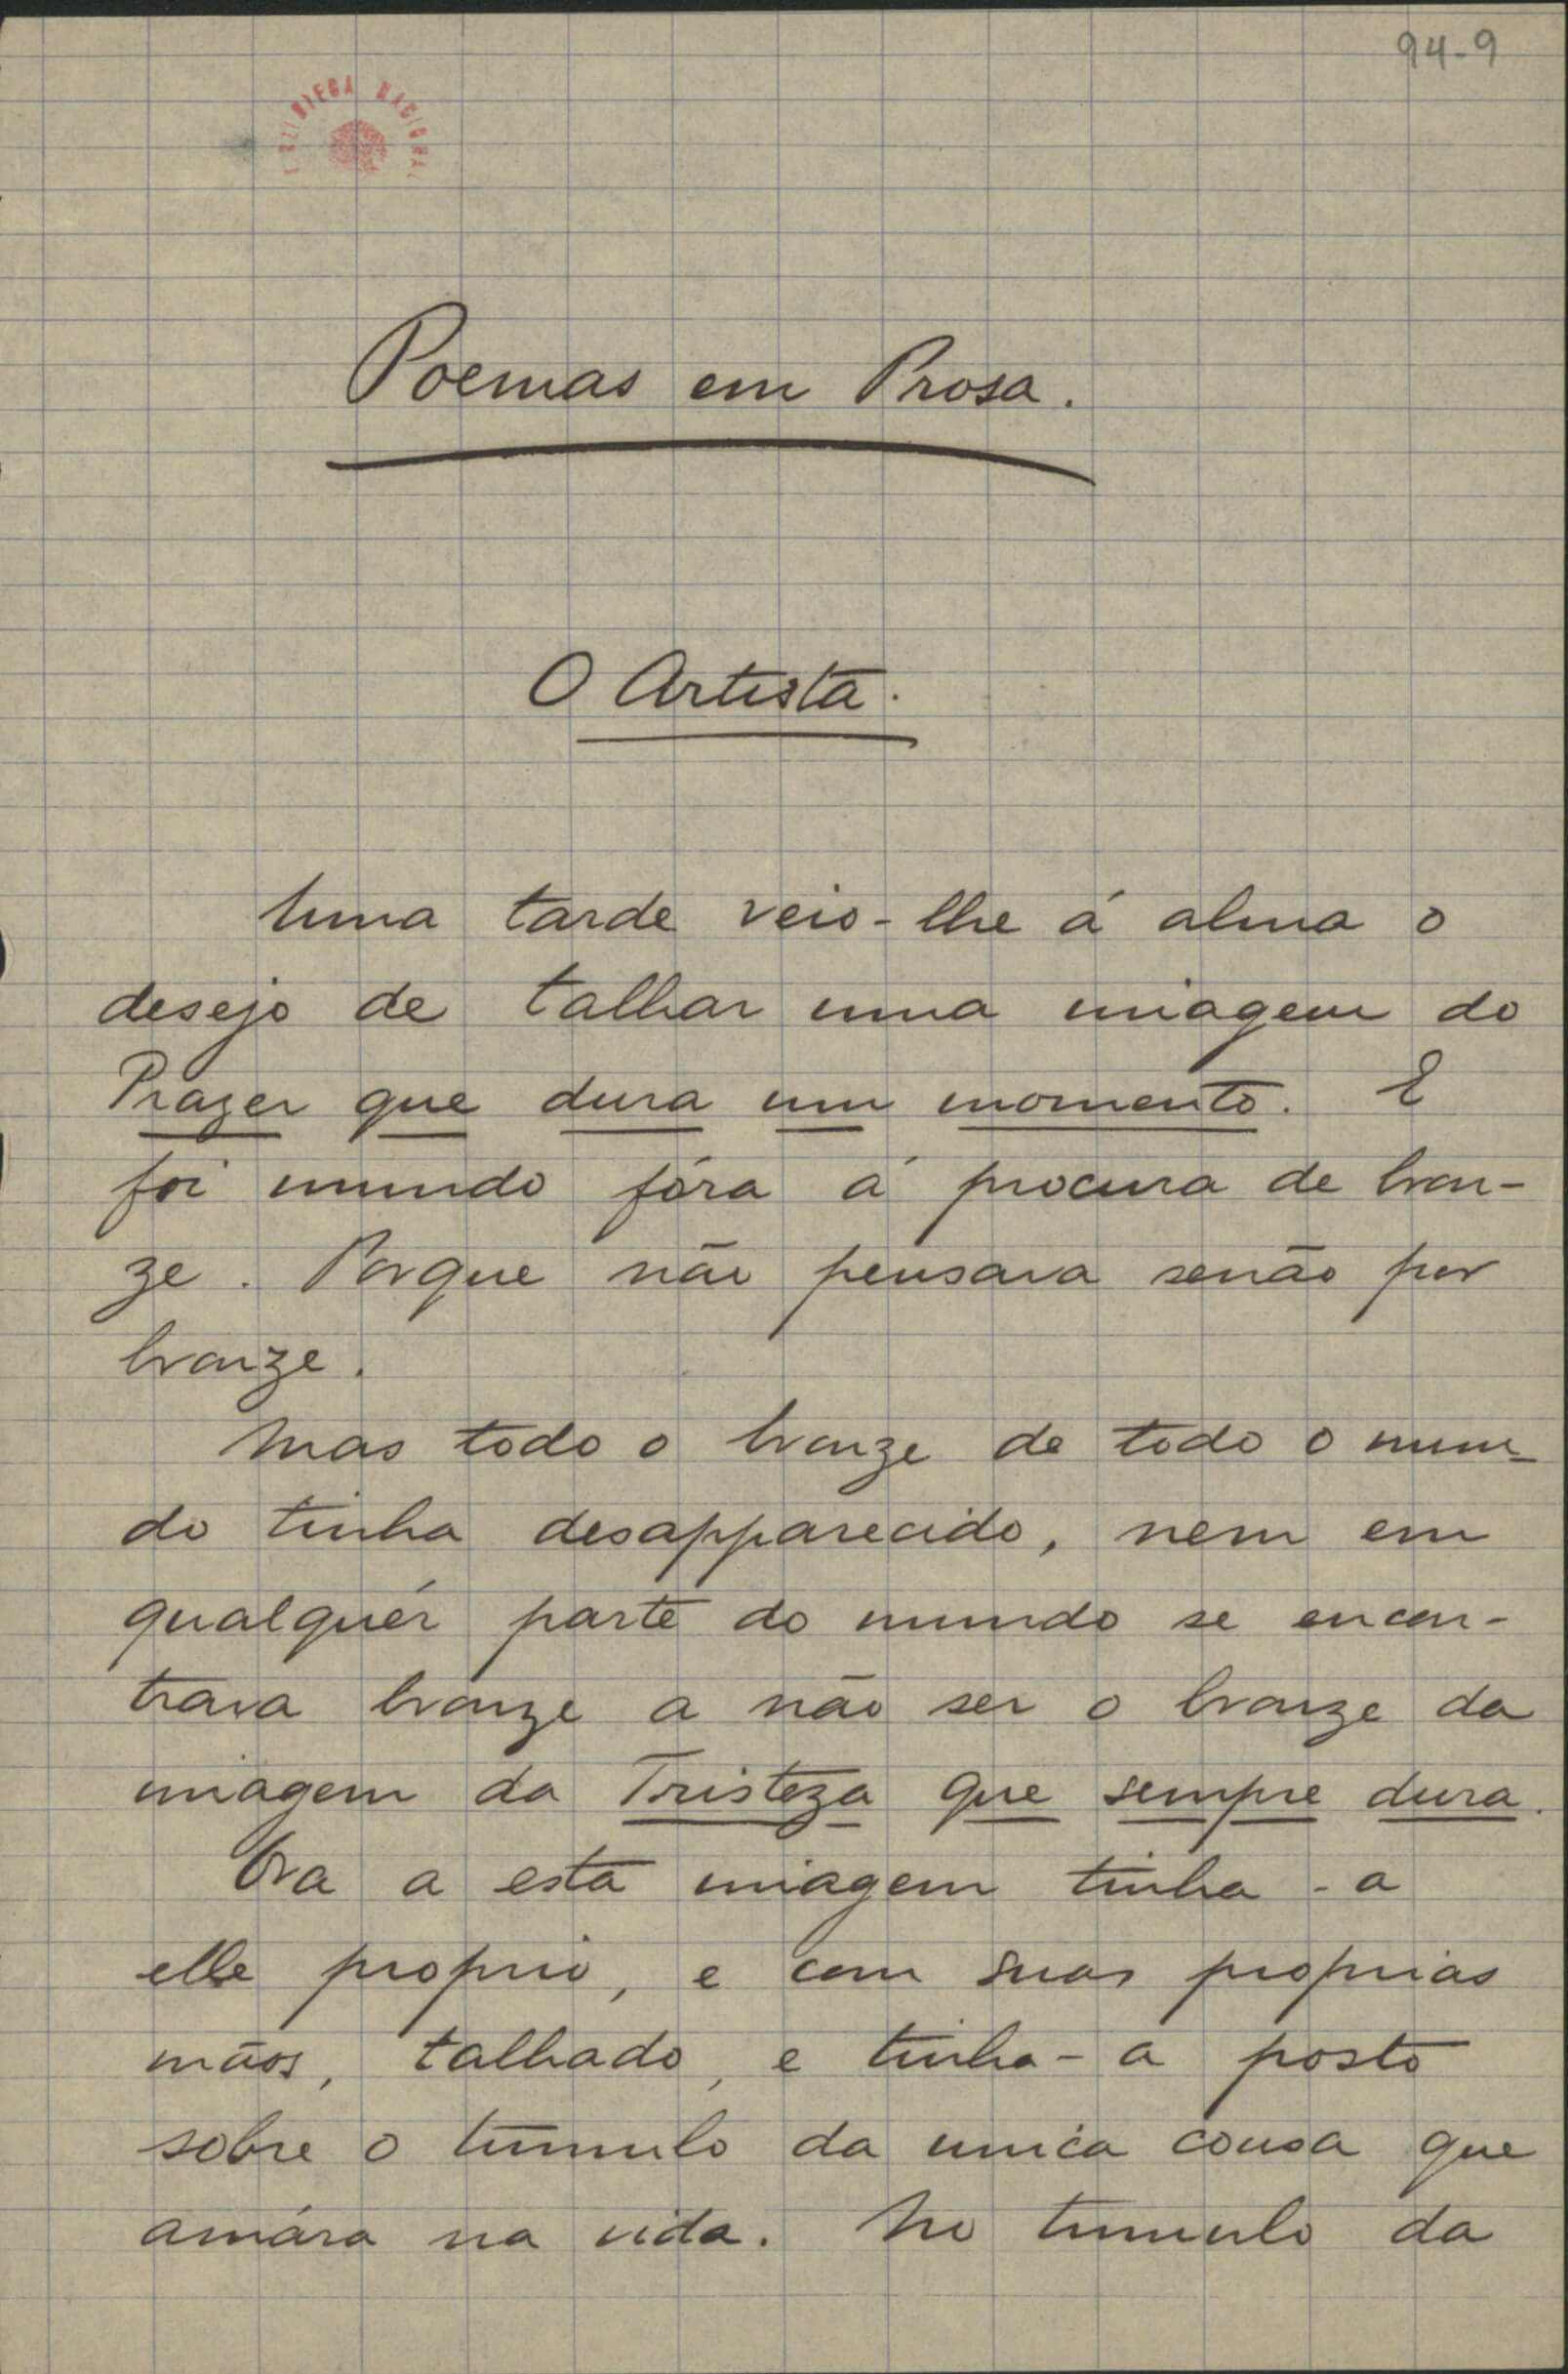 94-9
BIBLIOTECA NACIONAL
Poemas em Prosa.
O Artista.
Uma tarde veio-lhe á alma o
desejo de talhar uma imagem do
Prazer que dura um momento. E
foi mundo fóra á procura de bron-
ze. Porque não pensava senão por
bronze.
Mas todo o bronze de todo o mun-
do tinha desapparecido, nem em
qualquér parte do mundo se encon-
trava bronze a não ser o bronze da
imagem da Tristeza que sempre dura.
Ora a esta imagem tinha-a
elle proprio, e com suas proprias
mãos, talhado, e tinha-a posto
sobre o tumulo da unica cousa que
amára na vida. No tumulo da